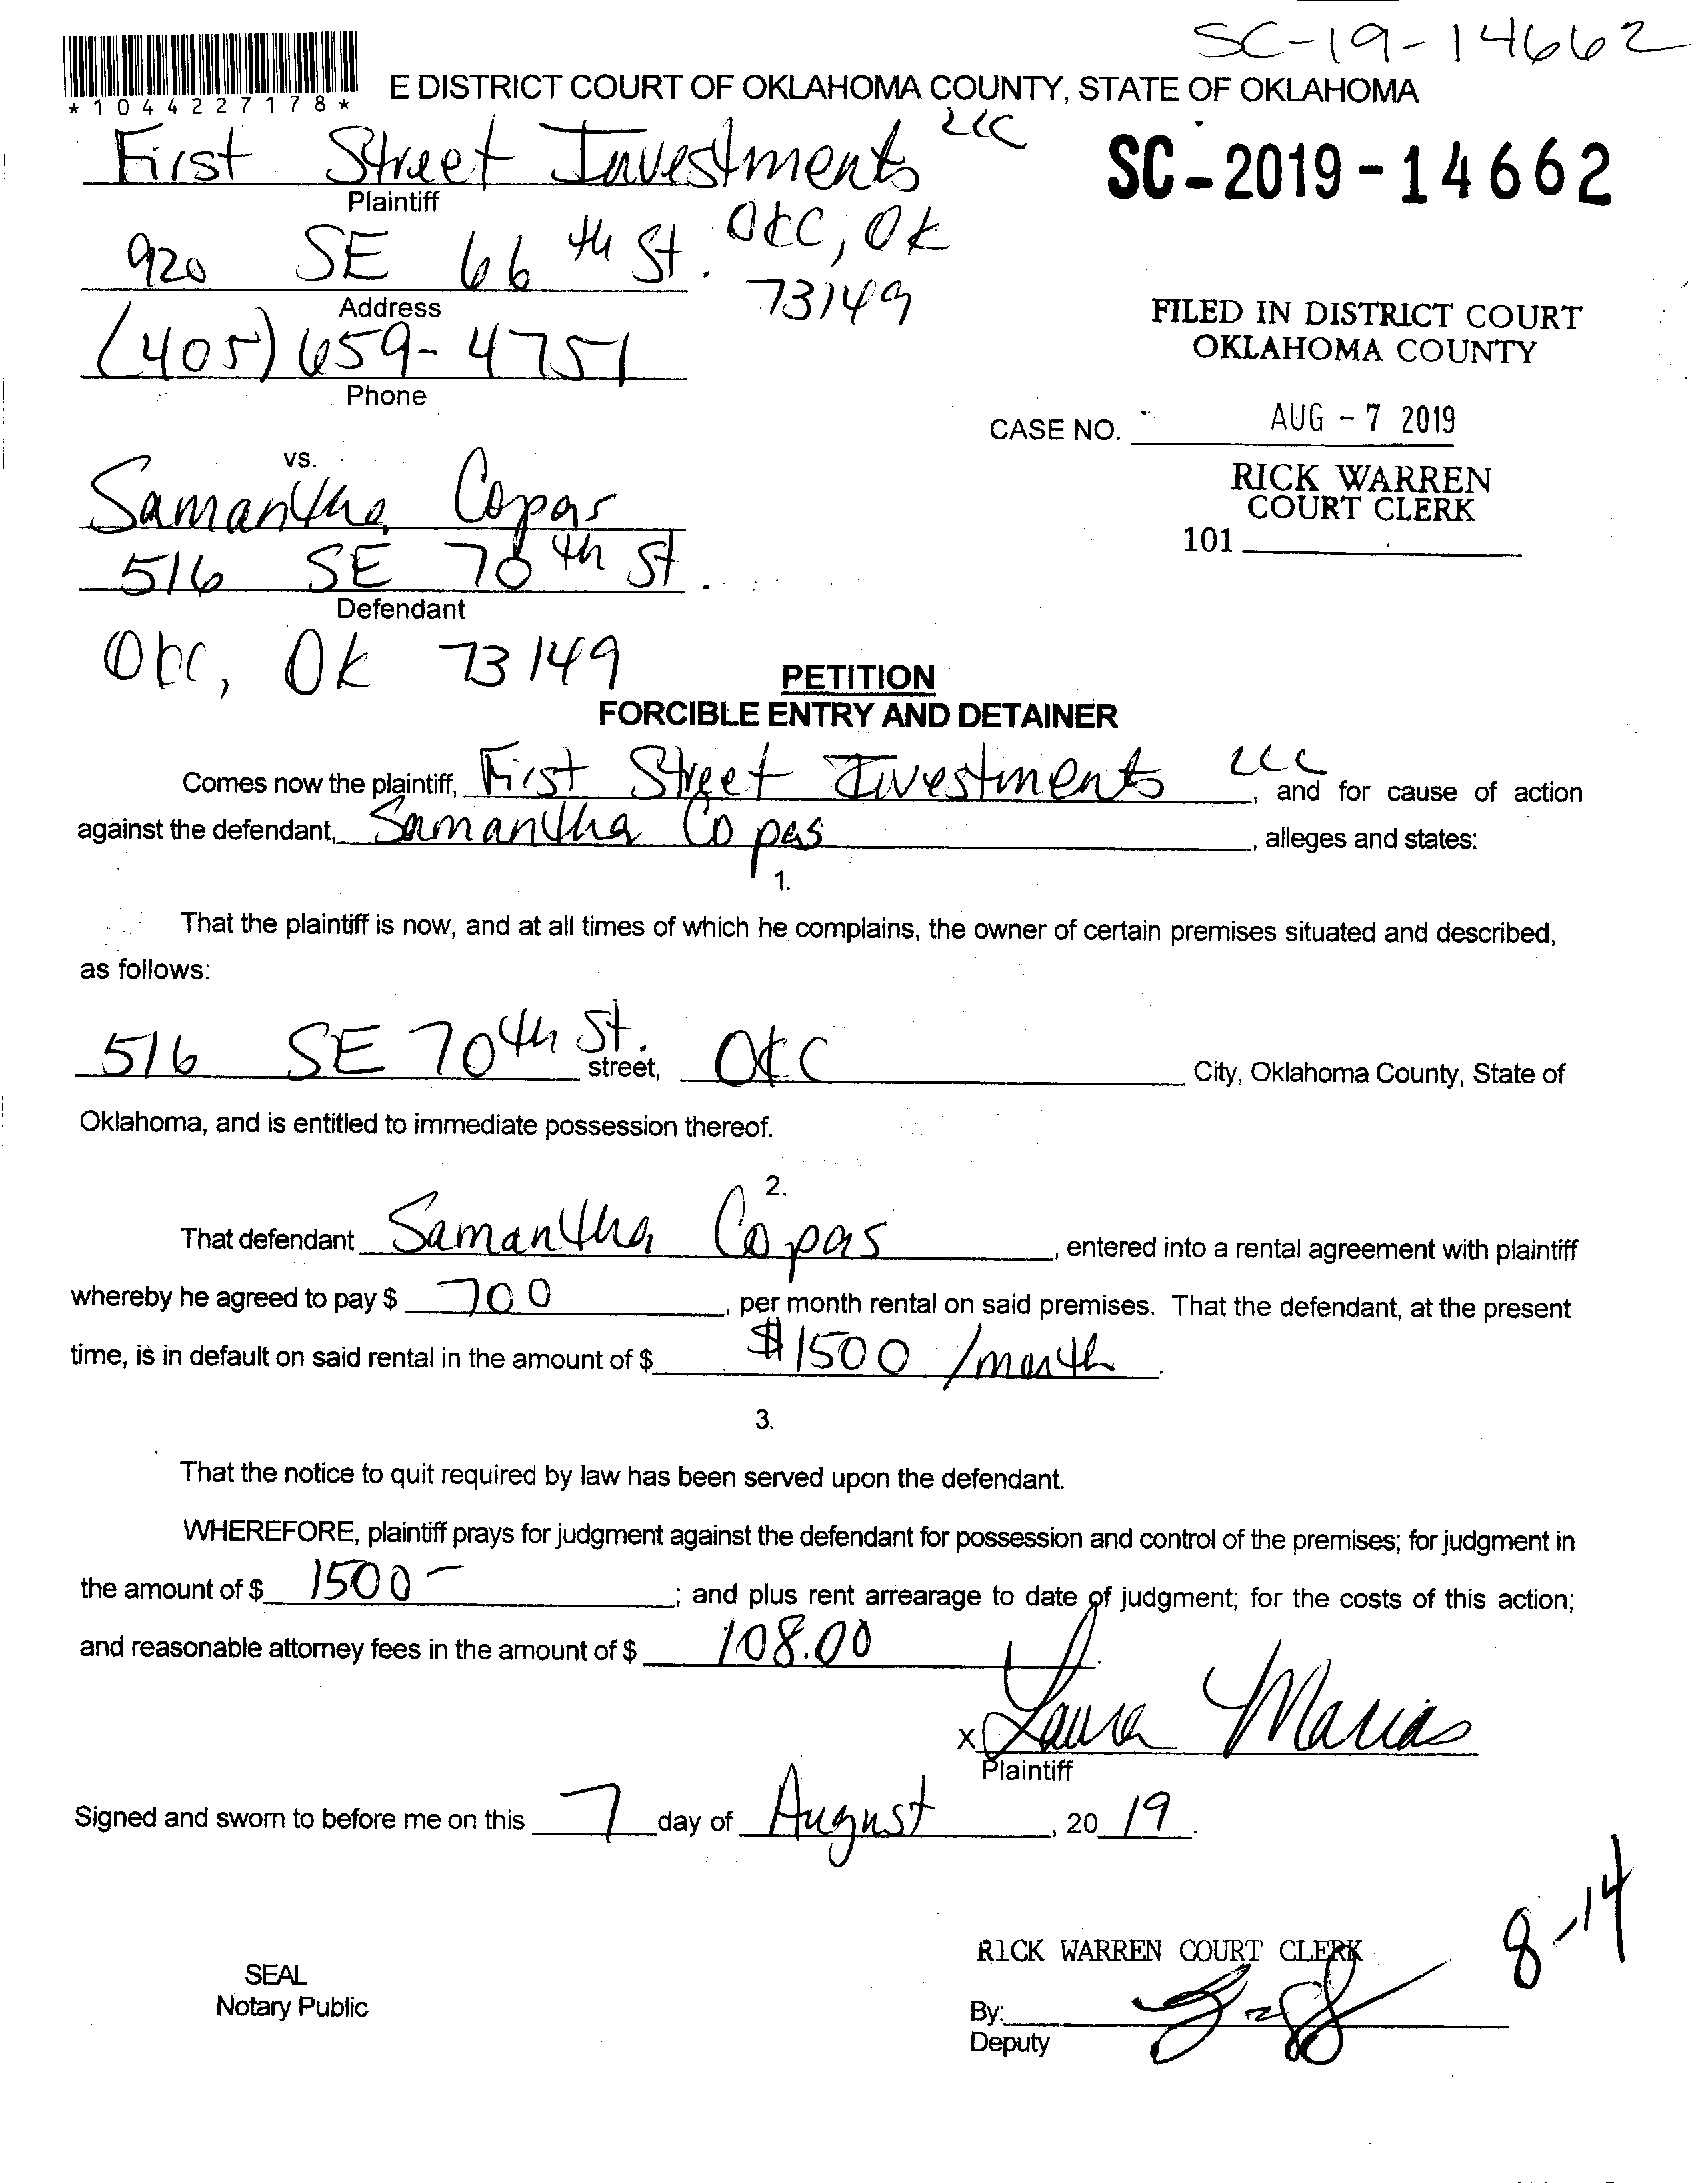 SC-19-14662
*1044227178*
E DISTRICT COURT OF OKLAHOMA COUNTY, STATE OF OKLAHOMA
First Street Investments LLC
Plaintiff
SC-2019-14662
920 SE 66th St. OKC, OK
73149
Address
(405) 659-4751
Phone
FILED IN DISTRICT COURT
OKLAHOMA COUNTY
CASE NO.
AUG - 7 2019
RICK WARREN
COURT CLERK
101
vs.
Samantha Copas
516 SE 70th St.
Defendant
OKC, OK 73149
PETITION
FORCIBLE ENTRY AND DETAINER
Comes now the plaintiff, First Street Investments LLC, and for cause of action
against the defendant, Samantha Copas, alleges and states:
1.
That the plaintiff is now, and at all times of which he complains, the owner of certain premises situated and described,
as follows:
516 SE 70th St. street, OKC City, Oklahoma County, State of
Oklahoma, and is entitled to immediate possession thereof.
2.
That defendant Samantha Copas, entered into a rental agreement with plaintiff
whereby he agreed to pay $ 700, per month rental on said premises. That the defendant, at the present
time, is in default on said rental in the amount of $ $1500 /month.
3.
That the notice to quit required by law has been served upon the defendant.
WHEREFORE, plaintiff prays for judgment against the defendant for possession and control of the premises; for judgment in
the amount of $ 1500-; and plus rent arrearage to date of judgment; for the costs of this action;
and reasonable attorney fees in the amount of $ 108.00.
x Laura Marias
Plaintiff
Signed and sworn to before me on this 7 day of August, 20 19.
8-14
RICK WARREN COURT CLERK
SEAL
Notary Public
By:
Deputy